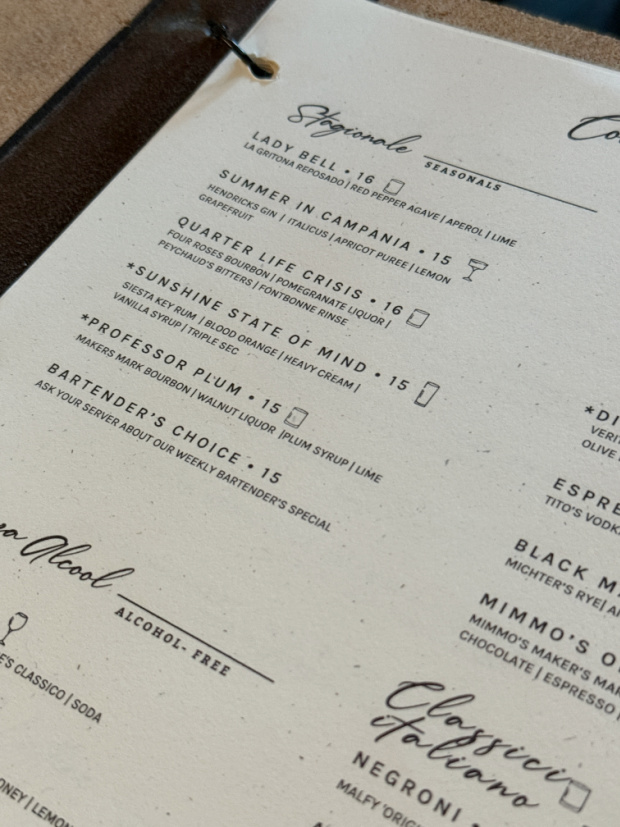 Stagionale
SEASONALS
LADY BELL • 16
LA GRITONA REPOSADO | RED PEPPER AGAVE | APEROL | LIME
SUMMER IN CAMPANIA • 15
HENDRICKS GIN | ITALICUS | APRICOT PUREE | LEMON
GRAPEFRUIT
QUARTER LIFE CRISIS • 16
FOUR ROSES BOURBON | POMEGRANATE LIQUOR |
PEYCHAUD'S BITTERS | FONTBONNE RINSE
*SUNSHINE STATE OF MIND • 15
SIESTA KEY RUM | BLOOD ORANGE | HEAVY CREAM |
VANILLA SYRUP | TRIPLE SEC
*PROFESSOR PLUM • 15
MAKERS MARK BOURBON | WALNUT LIQUOR |PLUM SYRUP | LIME
BARTENDER'S CHOICE • 15
ASK YOUR SERVER ABOUT OUR WEEKLY BARTENDER'S SPECIAL
Alcool
ALCOHOL- FREE
CLASSICO | SODA
| LEMON
OLIVE
TITO'S
BLACK
MICHTER'S RYE|
MIMMO'S
MIMMO'S MAKER'S
CHOCOLATE | ESPRESSO
Classici
italiano
NEGRONI •
MALFY